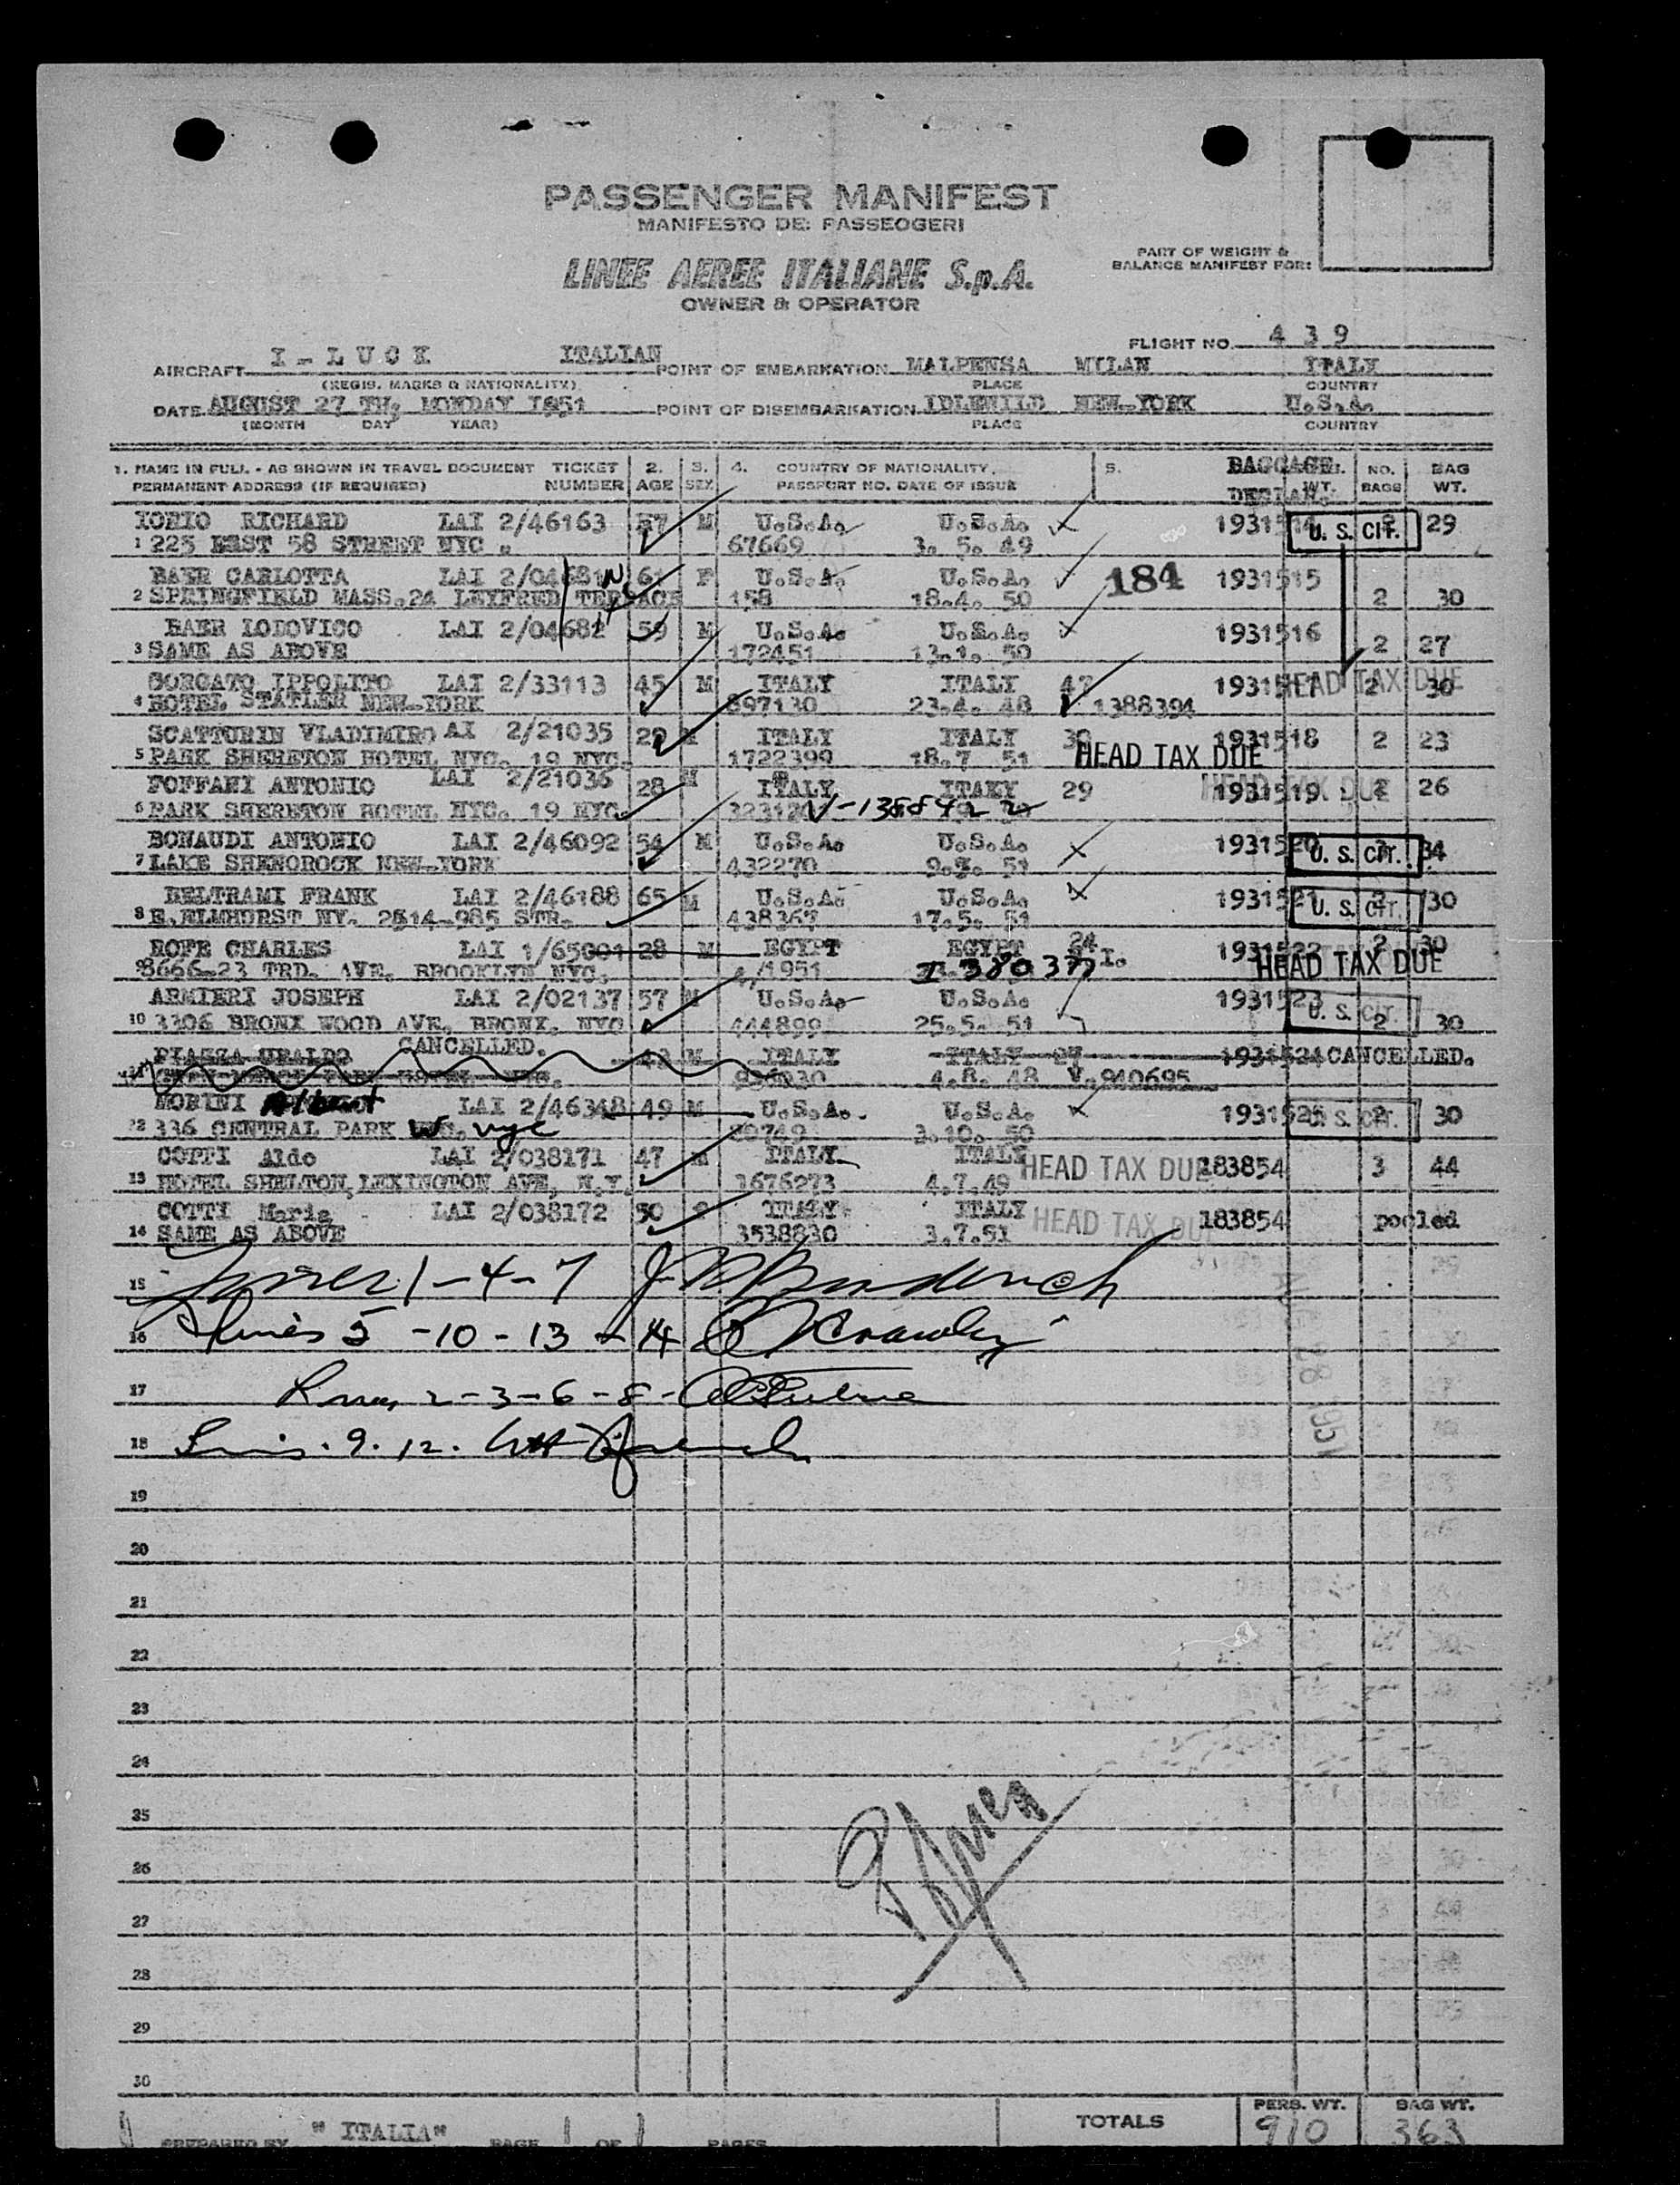 PASSENGER MANIFEST
MANIFESTO DEI PASSEOGERI
LINEE AEREE ITALIANE S.p.A.
OWNER & OPERATOR
PART OF WEIGHT &
BALANCE MANIFEST FOR:
FLIGHT NO. 4 3 9
AIRCRAFT I - L U C K ITALIAN POINT OF EMBARKATION MALPENSA MILAN ITALY
(REGIS. MARKS & NATIONALITY) PLACE COUNTRY
DATE AUGUST 27 TH, MONDAY 1951 POINT OF DISEMBARKATION IDLEWILD NEW-YORK U.S.A.
(MONTH DAY YEAR) PLACE COUNTRY
1. NAME IN FULL - AS SHOWN IN TRAVEL DOCUMENT TICKET 2. 3. 4. COUNTRY OF NATIONALITY, 5. BAGGAGE NO. BAG
PERMANENT ADDRESS (IF REQUIRED) NUMBER AGE SEX PASSPORT NO. DATE OF ISSUE WT. BAGS WT.
IORIO RICHARD LAI 2/46163 57 M U.S.A. U.S.A. 1931514 U. S. CIT. 2 29
1 225 EAST 58 STREET NYC. 67669 3. 5. 49
BAER CARLOTTA LAI 2/04681 61 F U.S.A. U.S.A. 184 1931515
2 SPRINGFIELD MASS.24 LEYFRED TERRACE 158 18.4. 50 2 30
BAER LODOVICO LAI 2/04682 59 M U.S.A. U.S.A. 1931516 2 27
3 SAME AS ABOVE 172451 13.1. 50
SORGATO IPPOLITO LAI 2/33113 45 M ITALY ITALY 47 1931517 HEAD TAX DUE 2 30
4 HOTEL STATLER NEW-YORK 897130 23.4. 48 1388394
SCATTURIN VLADIMIRO AI 2/21035 29 M ITALY ITALY 30 1931518 2 23
5 PARK SHERETON HOTEL NYC. 19 NYC. 1722399 18.7 51 HEAD TAX DUE
FOFFANI ANTONIO LAI 2/21036 28 M ITALY ITAKY 29 1931519 HEAD TAX DUE 2 26
6 PARK SHERETON HOTEL NYC. 19 NYC. V-1388422
BONAUDI ANTONIO LAI 2/46092 54 M U.S.A. U.S.A. 1931520 U. S. CIT. 34
7 LAKE SHENOROCK NEW-YORK 432270 51
BELTRAMI FRANK LAI 2/46188 65 M U.S.A. U.S.A. 1931521 U. S. CIT. 2 30
8 E.ELMHURST NY. 2514-985 STR. 438367 17.5. 51
ROFE CHARLES LAI 1/65001 28 M EGYPT EGYPT 24 1931522 2 30
9 8666-23 TRD. AVE. BROOKLYN NYC. /1951 I 380377 I. HEAD TAX DUE
ARMIERI JOSEPH LAI 2/02137 57 M U.S.A. U.S.A. 1931523 U. S. CIT.
10 3306 BRONX WOOD AVE, BRONX, NYC 444899 25.5. 51 2 30
PIAZZA UBALDO CANCELLED. 43 M ITALY ITALY 1931524 CANCELLED.
4.8. 48 V.940695
MORINI Albert LAI 2/46348 49 M U.S.A. U.S.A. 1931525 U. S. CIT. 2 30
12 336 CENTRAL PARK W. nyc 20749 3.10. 50
COTTI Aldo LAI 2/038171 47 M ITALY ITALY HEAD TAX DUE 183854 3 44
13 HOTEL SHELTON,LEXINGTON AVE, N.Y. 1676273 4.7.49
COTTI Maria LAI 2/038172 50 F ITALY ITALY HEAD TAX DUE 183854 pooled
14 SAME AS ABOVE 3538830 3.7.51
15 1-4-7
16 5 -10 - 13 - 14
17 2-3-6-8-
18 9. 12.
AUG 28 1951
19
20
21
22
23
24
35
26
27
28
29
30
TOTALS PERS. WT. 910 BAG WT. 363
PREPARED BY "ITALIA" PAGE 1 OF 1 PAGES